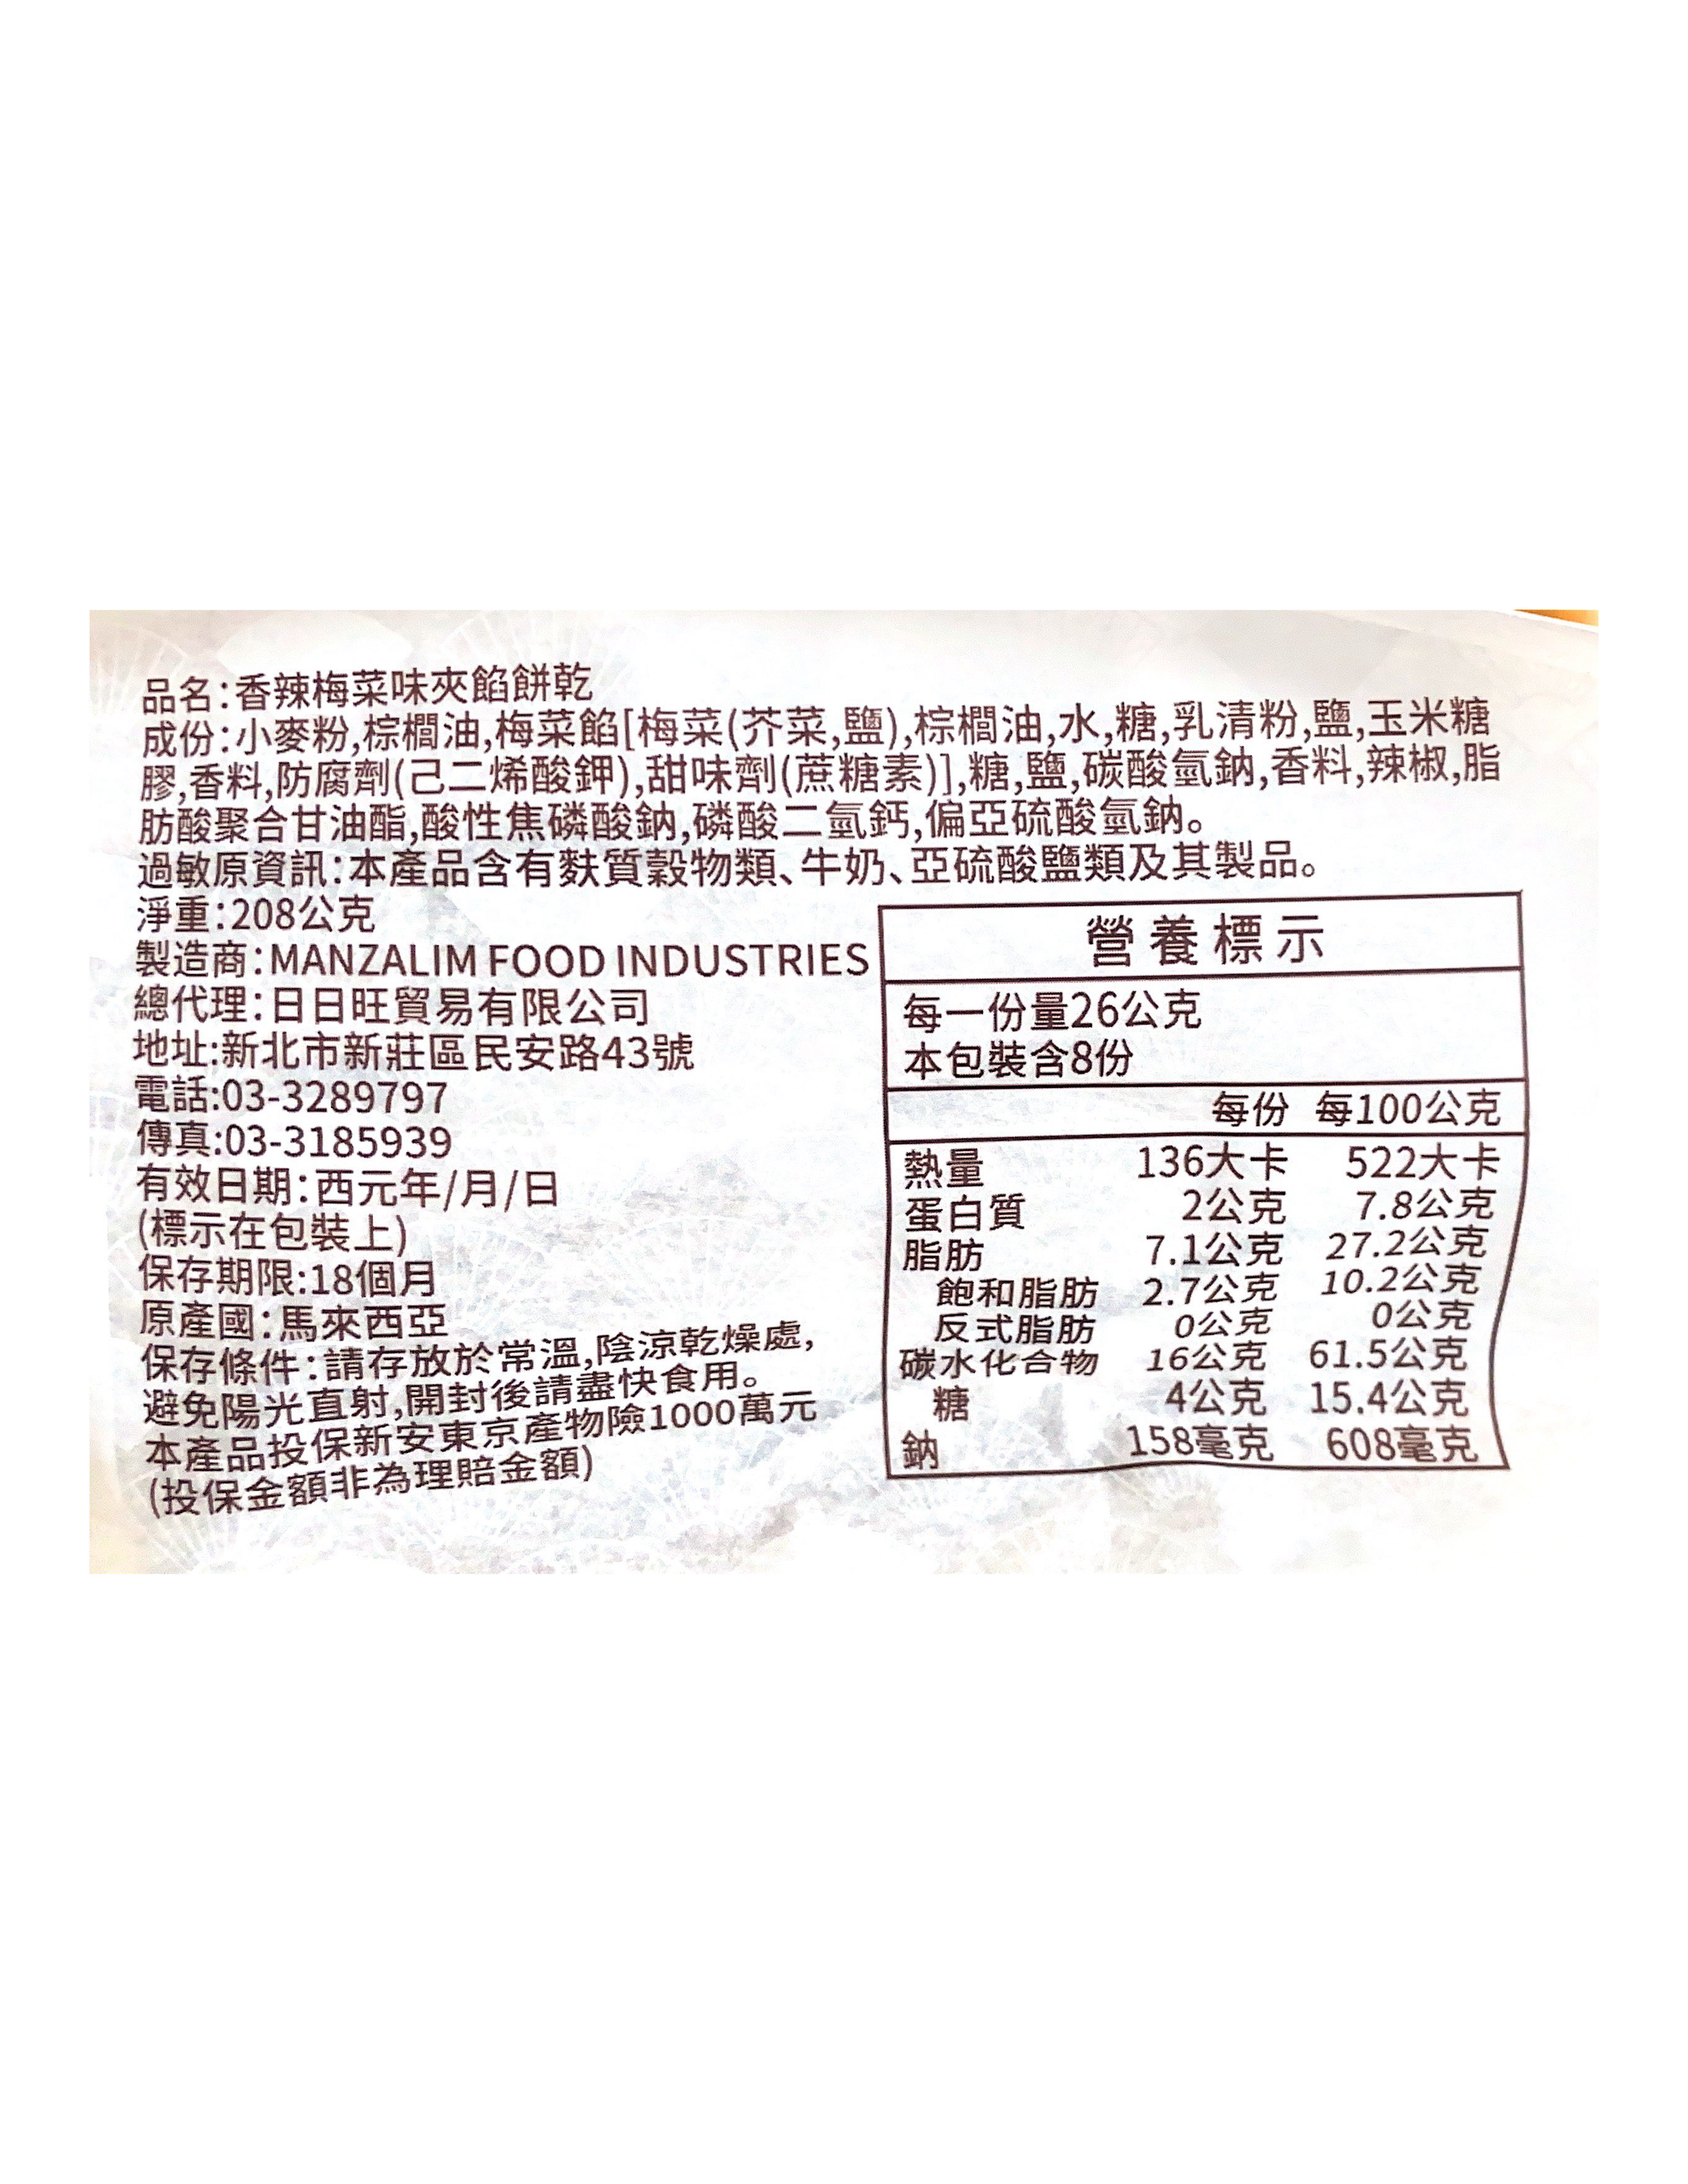 品名:香辣梅菜味夾餡餅乾
成份:小麥粉,棕櫚油,梅菜餡[梅菜(芥菜,鹽),棕櫚油,水,糖,乳清粉,鹽,玉米糖
膠,香料,防腐劑(己二烯酸鉀),甜味劑(蔗糖素)],糖,鹽,碳酸氫鈉,香料,辣椒,脂
肪酸聚合甘油酯,酸性焦磷酸鈉,磷酸二氫鈣,偏亞硫酸氫鈉。
過敏原資訊:本產品含有麩質穀物類、牛奶、亞硫酸鹽類及其製品。
淨重:208公克
製造商:MANZALIM FOOD INDUSTRIES
總代理:日日旺貿易有限公司
地址:新北市新莊區民安路43號
電話:03-3289797
傳真:03-3185939
有效日期:西元年/月/日
(標示在包裝上)
保存期限:18個月
原產國:馬來西亞
保存條件:請存放於常溫,陰涼乾燥處,
避免陽光直射,開封後請盡快食用。
本產品投保新安東京產物險1000萬元
(投保金額非為理賠金額)
營養標示
每一份量26公克
本包裝含8份
每份 每100公克
熱量 136大卡 522大卡
蛋白質 2公克 7.8公克
脂肪 7.1公克 27.2公克
飽和脂肪 2.7公克 10.2公克
反式脂肪 0公克 0公克
碳水化合物 16公克 61.5公克
糖 4公克 15.4公克
鈉 158毫克 608毫克